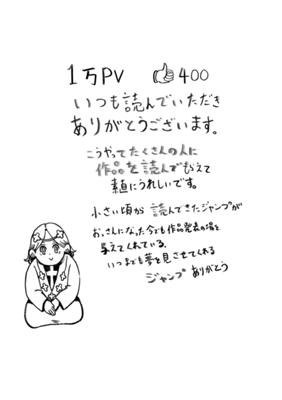 1万PV 👍400
いつも読んでいただき
ありがとうございます。
こうやってたくさんの人に
作品を読んでもらえて
素直にうれしいです。
小さい頃から読んできたジャンプが
おっさんになった今でも作品発表の場を
与えてくれている。
いつまでも夢を見させてくれる
ジャンプありがとう